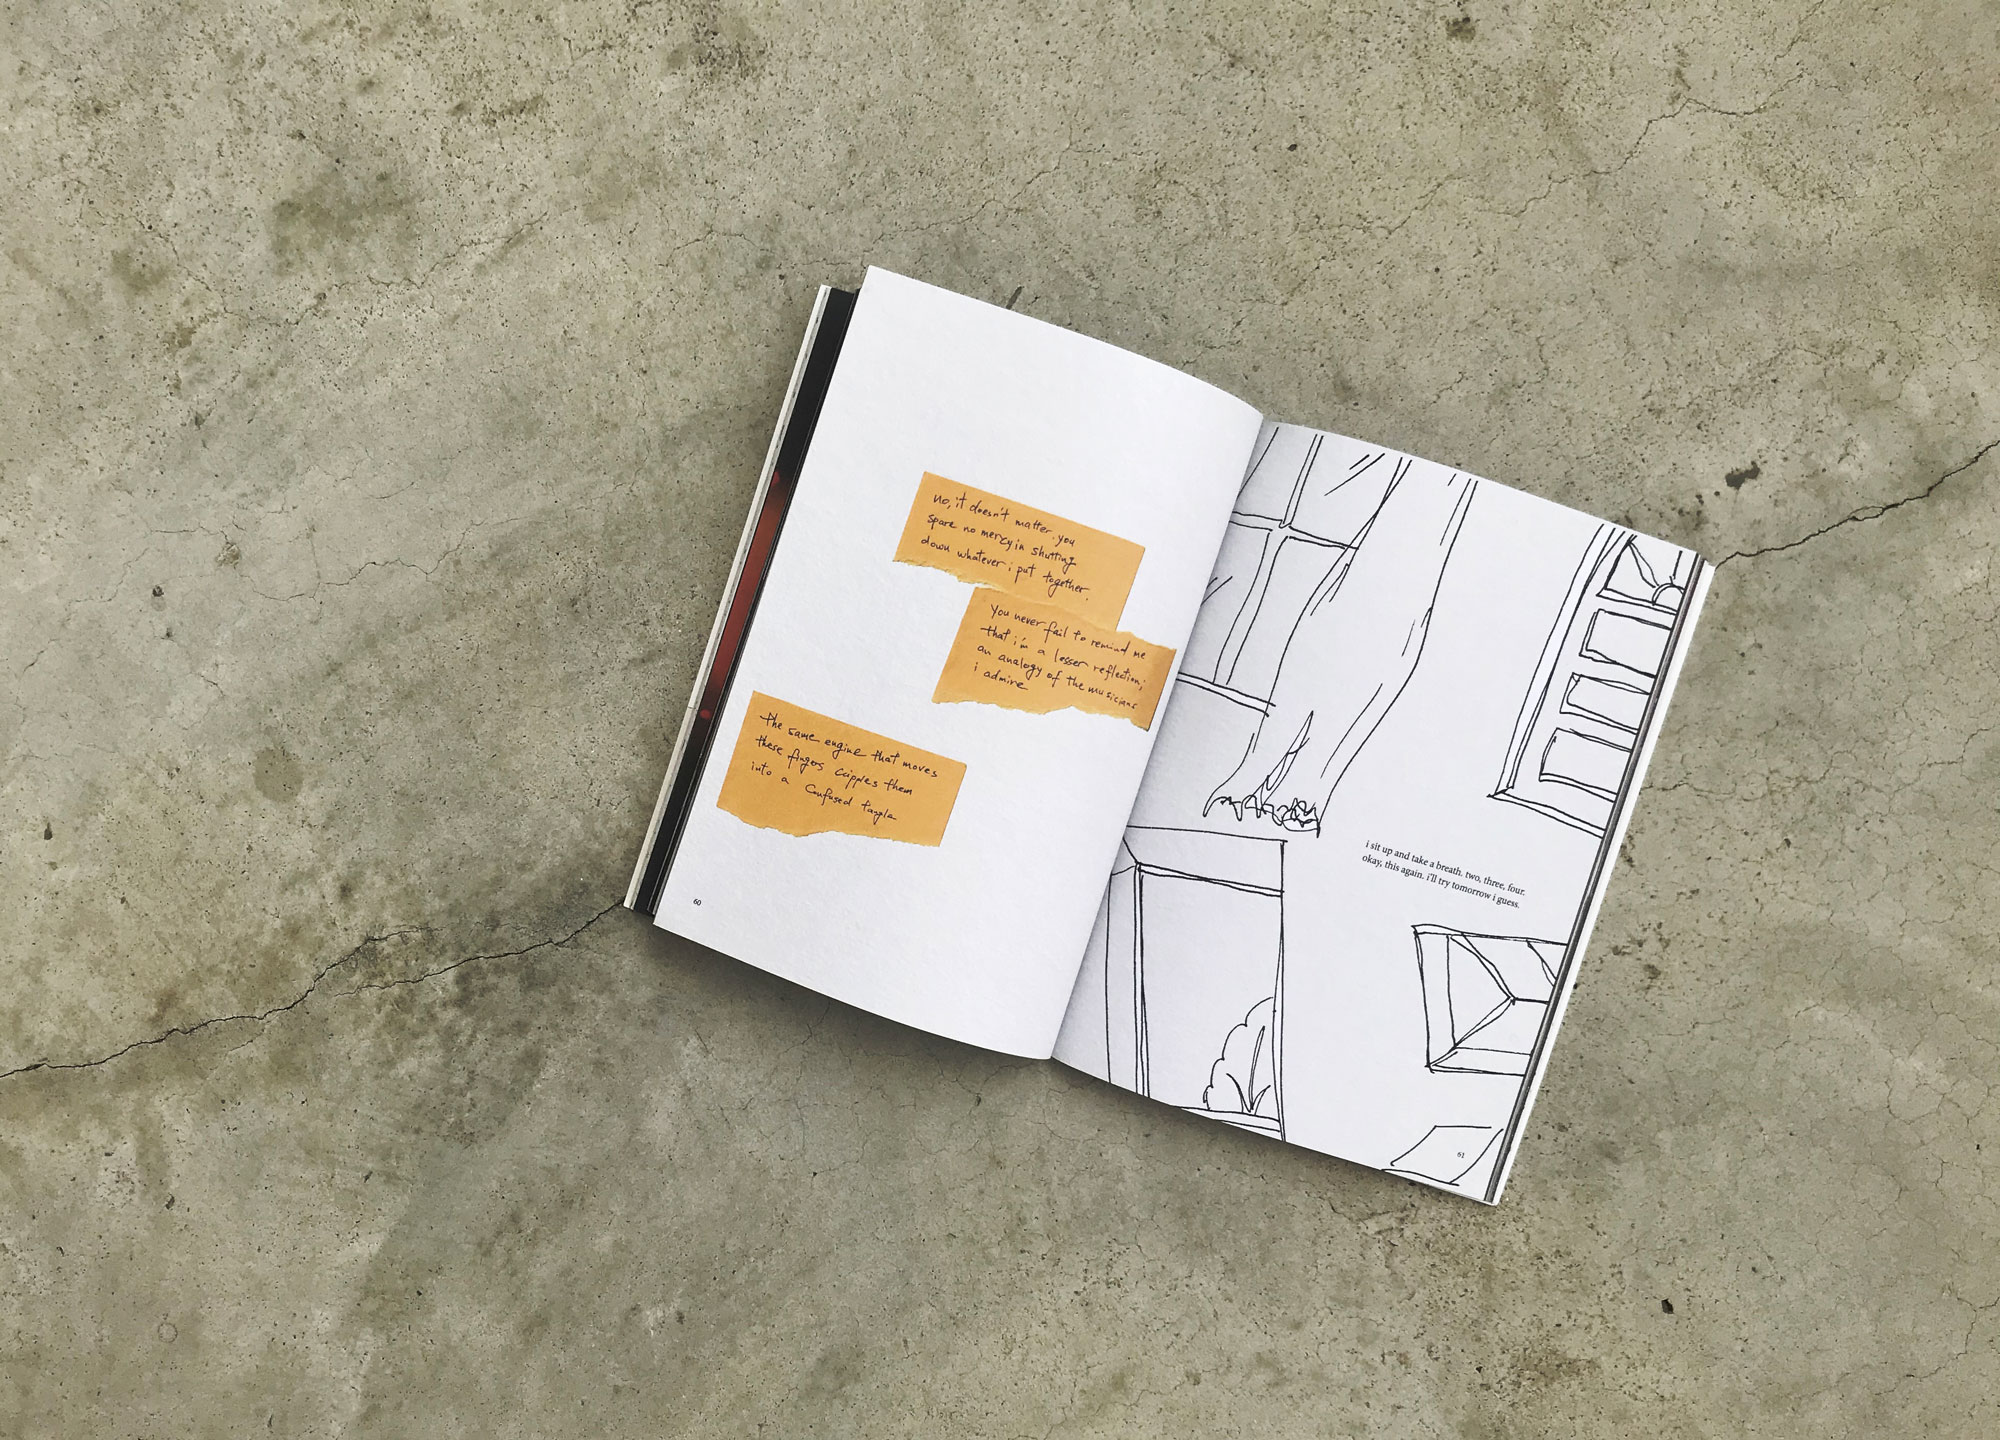 no, it doesn't matter. you
spare no mercy in shutting
down whatever i put together.
You never fail to remind me
that i'm a lesser reflection;
an analogy of the musicians
i admire
The same engine that moves
these fingers cripples them
into a confused tangle
60
i sit up and take a breath. two, three, four.
okay, this again. i'll try tomorrow i guess.
61